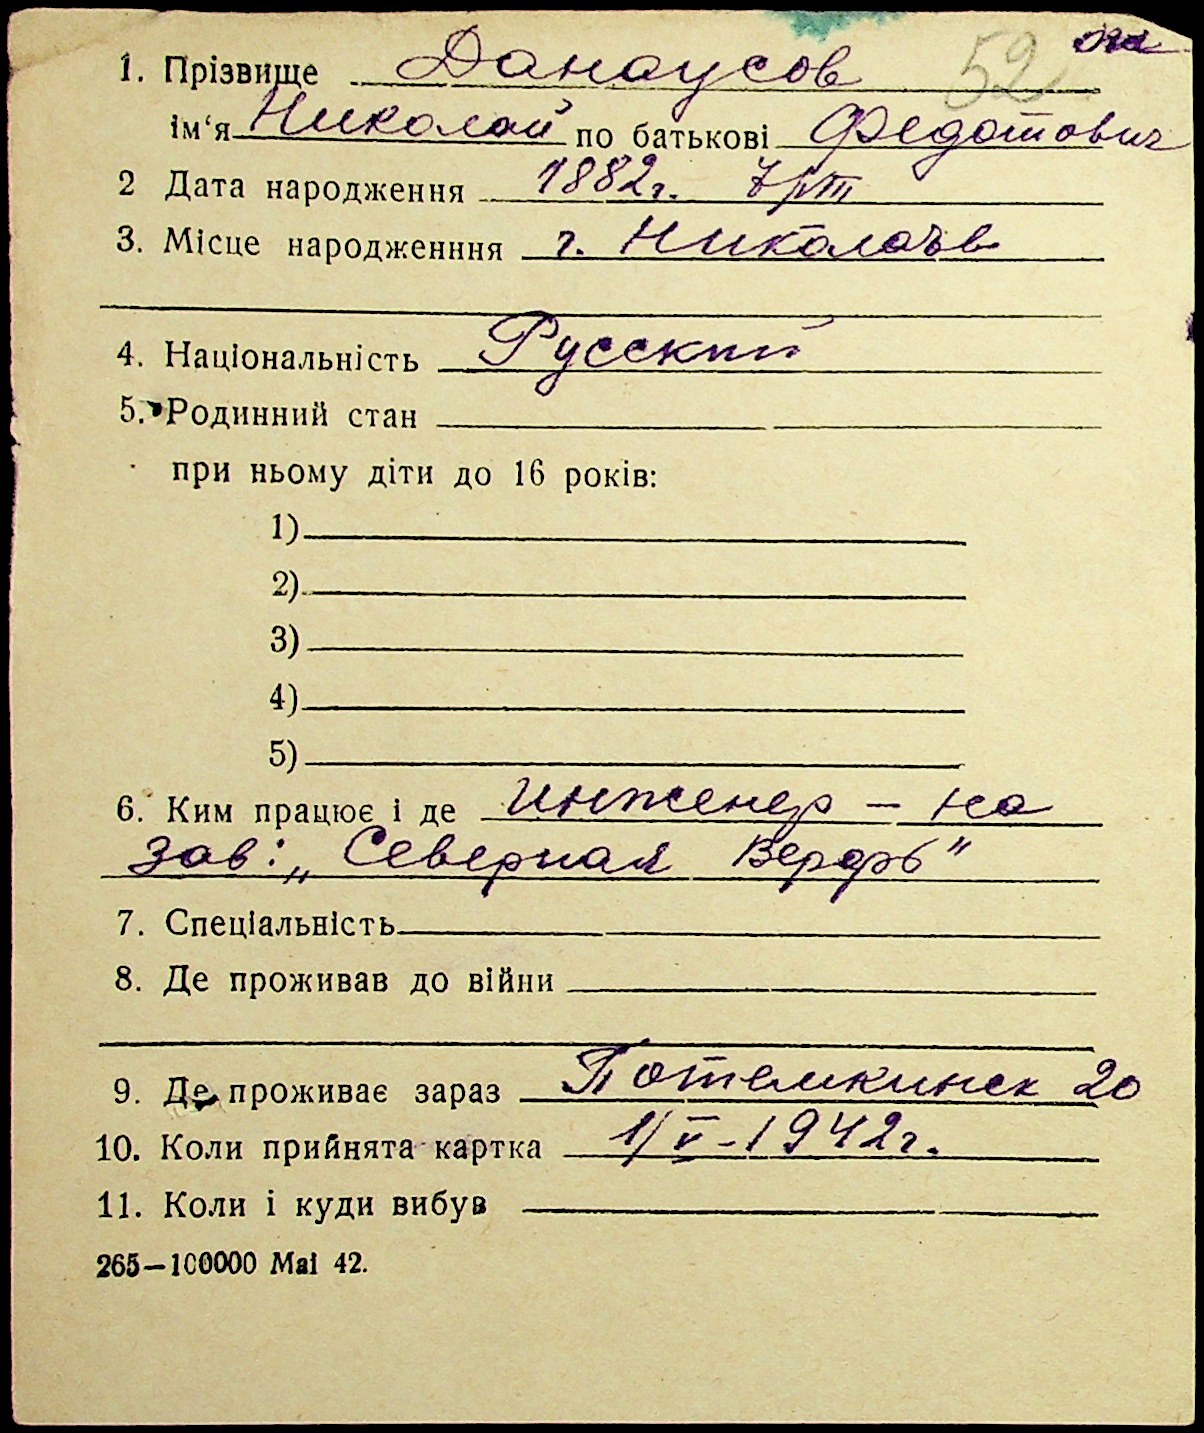 52
1. Прізвище Данаусов
ім‘я Николай по батькові Федотович
2 Дата народження 1882г. 7/VIII
3. Місце народженння г. Николаевъ
4. Національність Русский
5. Родинний стан
при ньому діти до 16 років:
1)
2)
3)
4)
5)
6. Ким працює і де инженер – на
зав: „Северная Верфь"
7. Спеціальність
8. Де проживав до війни
9. Де проживає зараз Потемкинск 20
10. Коли прийнята картка 1/V-1942г.
11. Коли і куди вибув
265—100000 Маі 42.